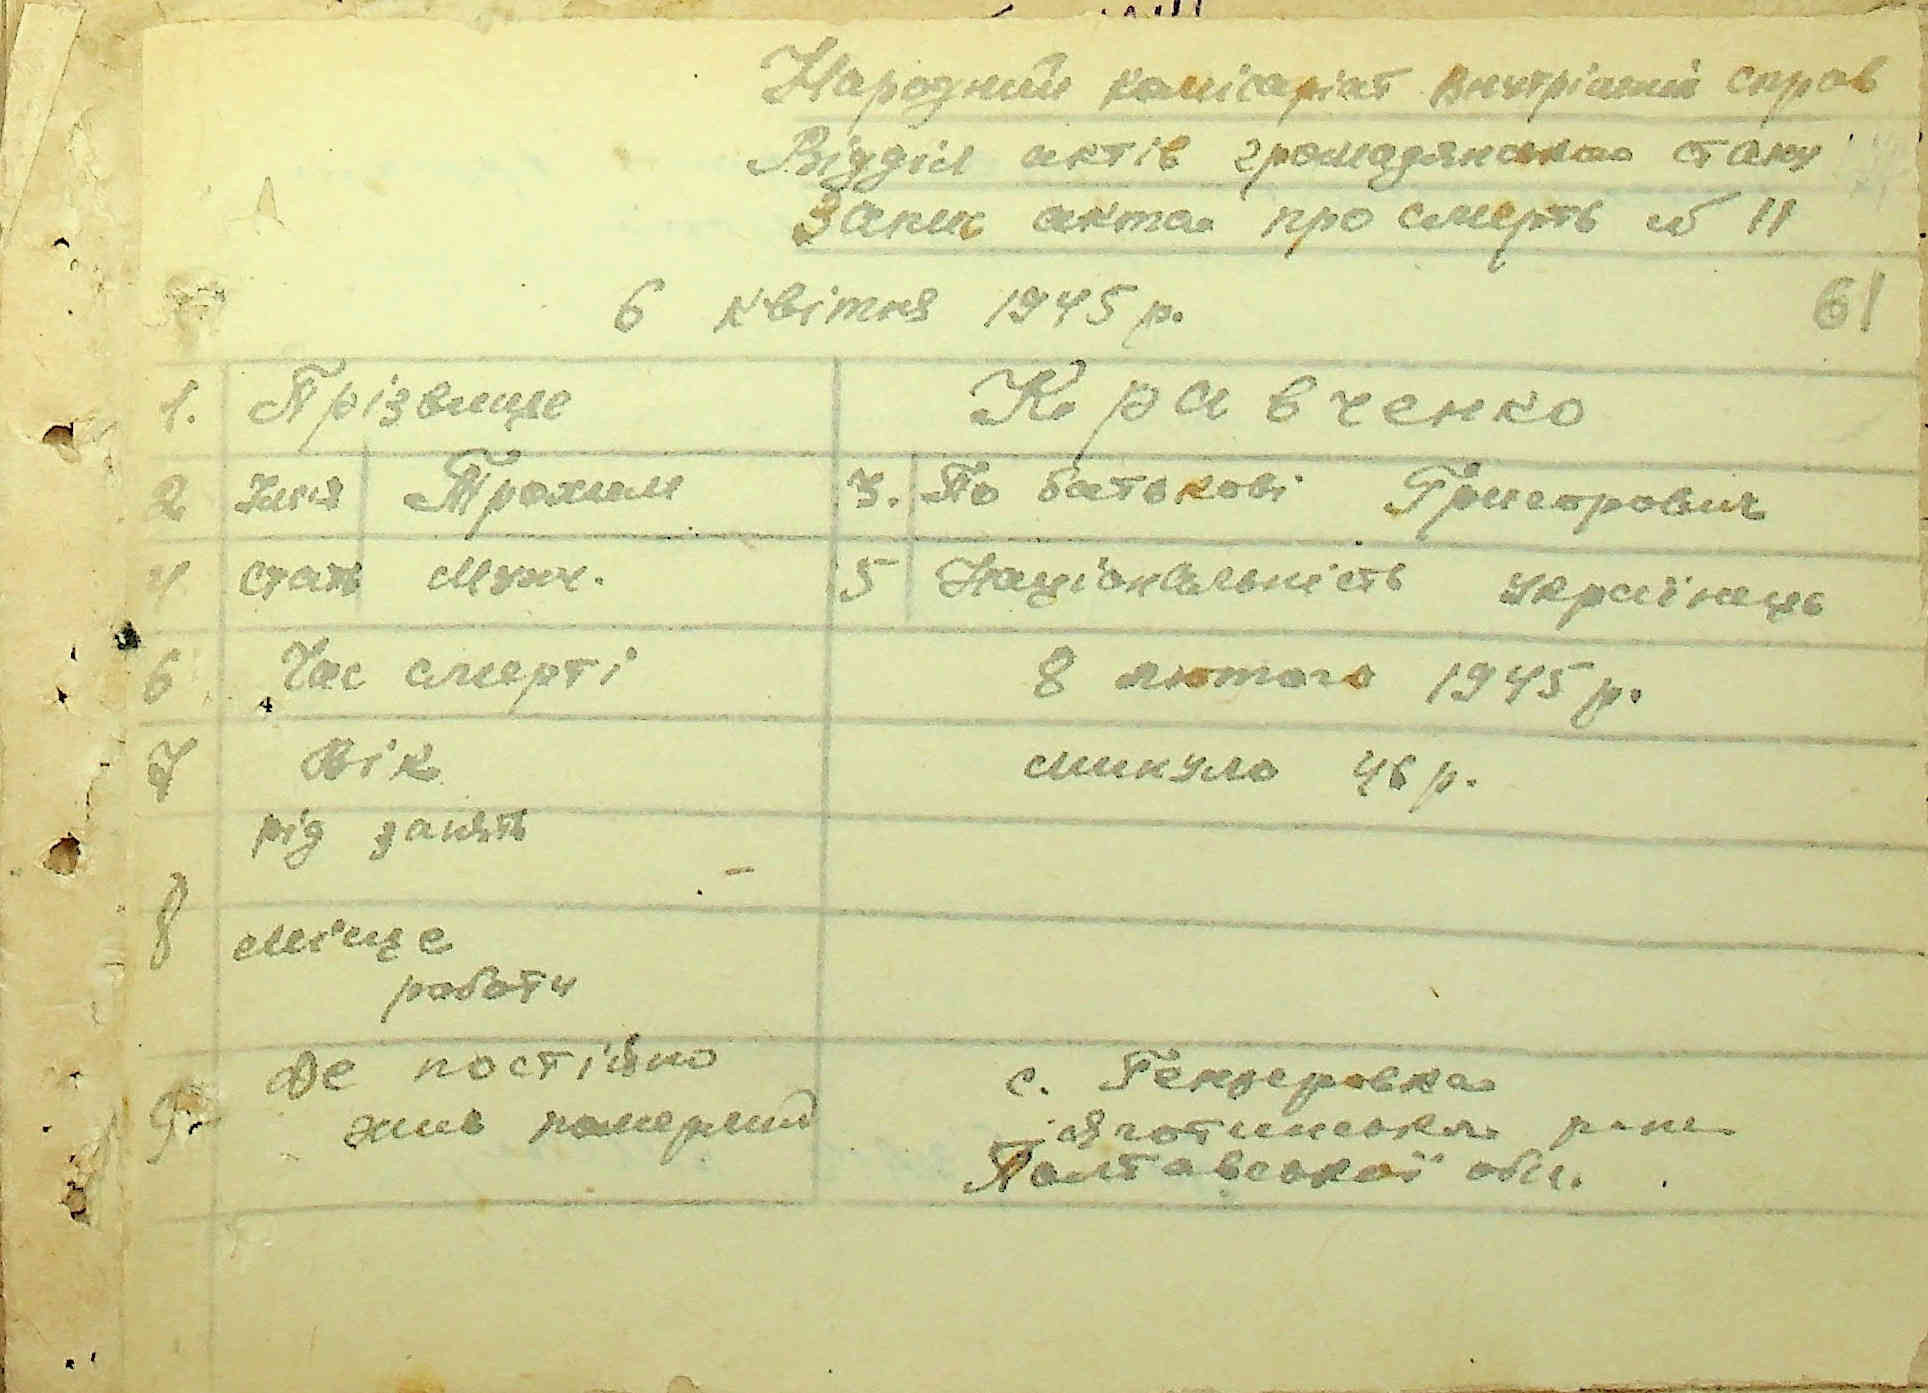 Народний комісаріат внутрішній справ
Відділ актів громадянська стану
Запис акта про смерть № 11
6 квітня 1945 р.
61
1. Прізвище Кравченко
2 Імя Трохим 3. По батькові Григорович
4 стать Муж. 5 Національність українець
6 Час смерті 8 лютого 1945 р.
7 Вік минуло 46 р.
рід занять -
8
місце
роботи
Де постійно с. Гензеровка
9. жив померлий Яготинська р-на
Полтавської обл.